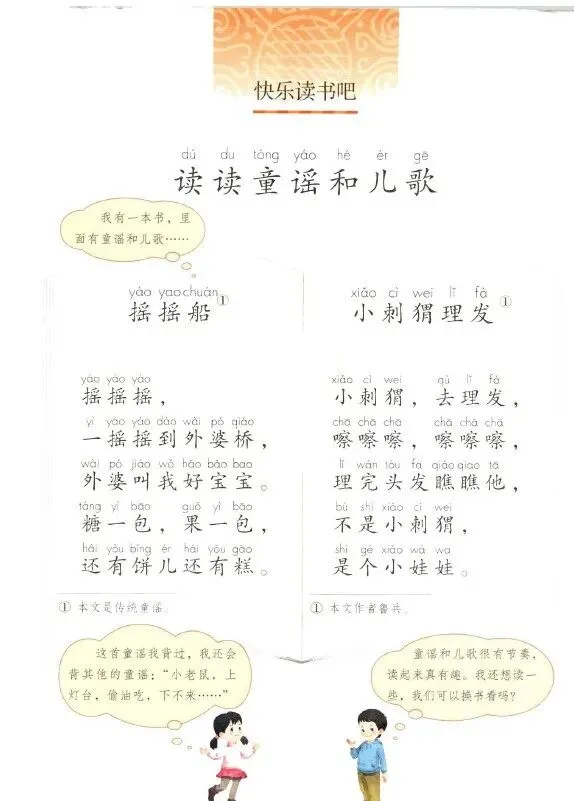 快乐读书吧
dú du tóng yáo hé ér gē
读读童谣和儿歌
我有一本书，里
面有童谣和儿歌……
yáo yao chuán
摇摇船①
yáo yáo yáo
摇摇摇，
yì yáo yáo dào wài pó qiáo
一摇摇到外婆桥，
wài pó jiào wǒ hǎo bǎo bao
外婆叫我好宝宝。
táng yì bāo guǒ yì bāo
糖一包，果一包，
hái yǒu bǐng ér hái yǒu gāo
还有饼儿还有糕。
① 本文是传统童谣。
xiǎo cì wei lǐ fà
小刺猬理发①
xiǎo cì wei qù lǐ fà
小刺猬，去理发，
chā chā chā chā chā chā
嚓嚓嚓，嚓嚓嚓，
lǐ wán tóu fa qiáo qiao tā
理完头发瞧瞧他，
bú shì xiǎo cì wei
不是小刺猬，
shì gè xiǎo wá wa
是个小娃娃。
① 本文作者鲁兵。
这首童谣我背过，我还会
背其他的童谣：“小老鼠，上
灯台，偷油吃，下不来……”
童谣和儿歌很有节奏，
读起来真有趣。我还想读一
些，我们可以换书看吗？